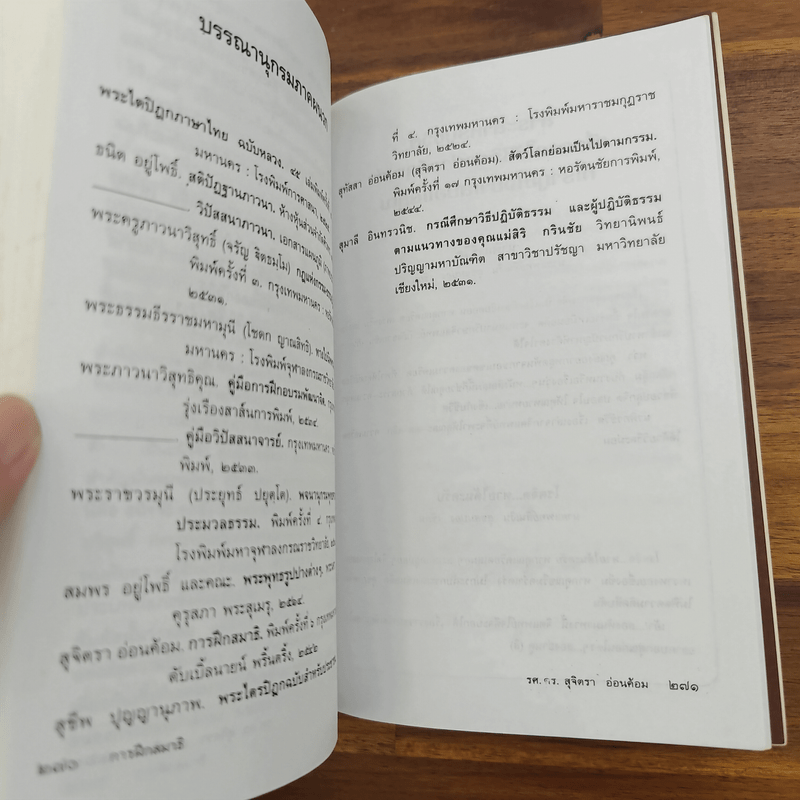 บรรณานุกรมภาคผนวก
พระไตปิฎกภาษาไทย ฉบับหลวง. ๔๕
มหานคร : โรงพิมพ์การศาสนา,
ธนิต อยู่โพธิ์. สติปัฏฐานภาวนา. ห้างหุ้นส่วน
วิปัสสนาภาวนา. เอกสารแผนภูมิ
พระครูภาวนาวิสุทธิ์ (จรัญ จิตธมฺโม) กฎแห่งกรรม
พิมพ์ครั้งที่ ๓. กรุงเทพมหานคร :
๒๕๓๑.
พระธรรมธีรราชมหามุนี (โชดก ญาณสิทธิ).
มหานคร : โรงพิมพ์จุฬาลงกรณ
พระภาวนาวิสุทธิคุณ. คู่มือการฝึกอบรมพัฒนาจิต.
รุ่งเรืองสาส์นการพิมพ์, ๒๕๓๔.
คู่มือวิปัสสนาจารย์. กรุงเทพมหานคร
พิมพ์, ๒๕๓๓.
พระราชวรมุนี (ประยุทธ์ ปยุตฺโต). พจนานุกรมพุทธ
ประมวลธรรม. พิมพ์ครั้งที่ ๔.
โรงพิมพ์มหาจุฬาลงกรณราชวิทยาลัย,
สมพร อยู่โพธิ์ และคณะ. พระพุทธรูปปางต่างๆ.
คุรุสภา พระสุเมรุ,
สุจิตรา อ่อนค้อม. การฝึกสมาธิ. พิมพ์ครั้งที่ ๖
ดับเบิ้ลนายน์ พริ้นติ้ง, ๒๕๔๒
สุชีพ ปุญญานุภาพ. พระไตรปิฎกฉบับสำหรับ
๒๗๐ การฝึกสมาธิ
ที่ ๔. กรุงเทพมหานคร : โรงพิมพ์มหาราชมกุฎราช
วิทยาลัย, ๒๕๒๔.
สุทัสสา อ่อนค้อม (สุจิตรา อ่อนค้อม). สัตว์โลกย่อมเป็นไปตามกรรม.
พิมพ์ครั้งที่ ๑๗ กรุงเทพมหานคร : หอรัตนชัยการพิมพ์,
๒๕๔๔.
สุมาลี อินทรวนิช. กรณีศึกษาวิธีปฏิบัติธรรม และผู้ปฏิบัติธรรม
ตามแนวทางของคุณแม่สิริ กรินชัย วิทยานิพนธ์
ปริญญามหาบัณฑิต สาขาวิชาปรัชญา มหาวิทยาลัย
เชียงใหม่, ๒๕๓๑.
รศ.ดร. สุจิตรา อ่อนค้อม ๒๗๑